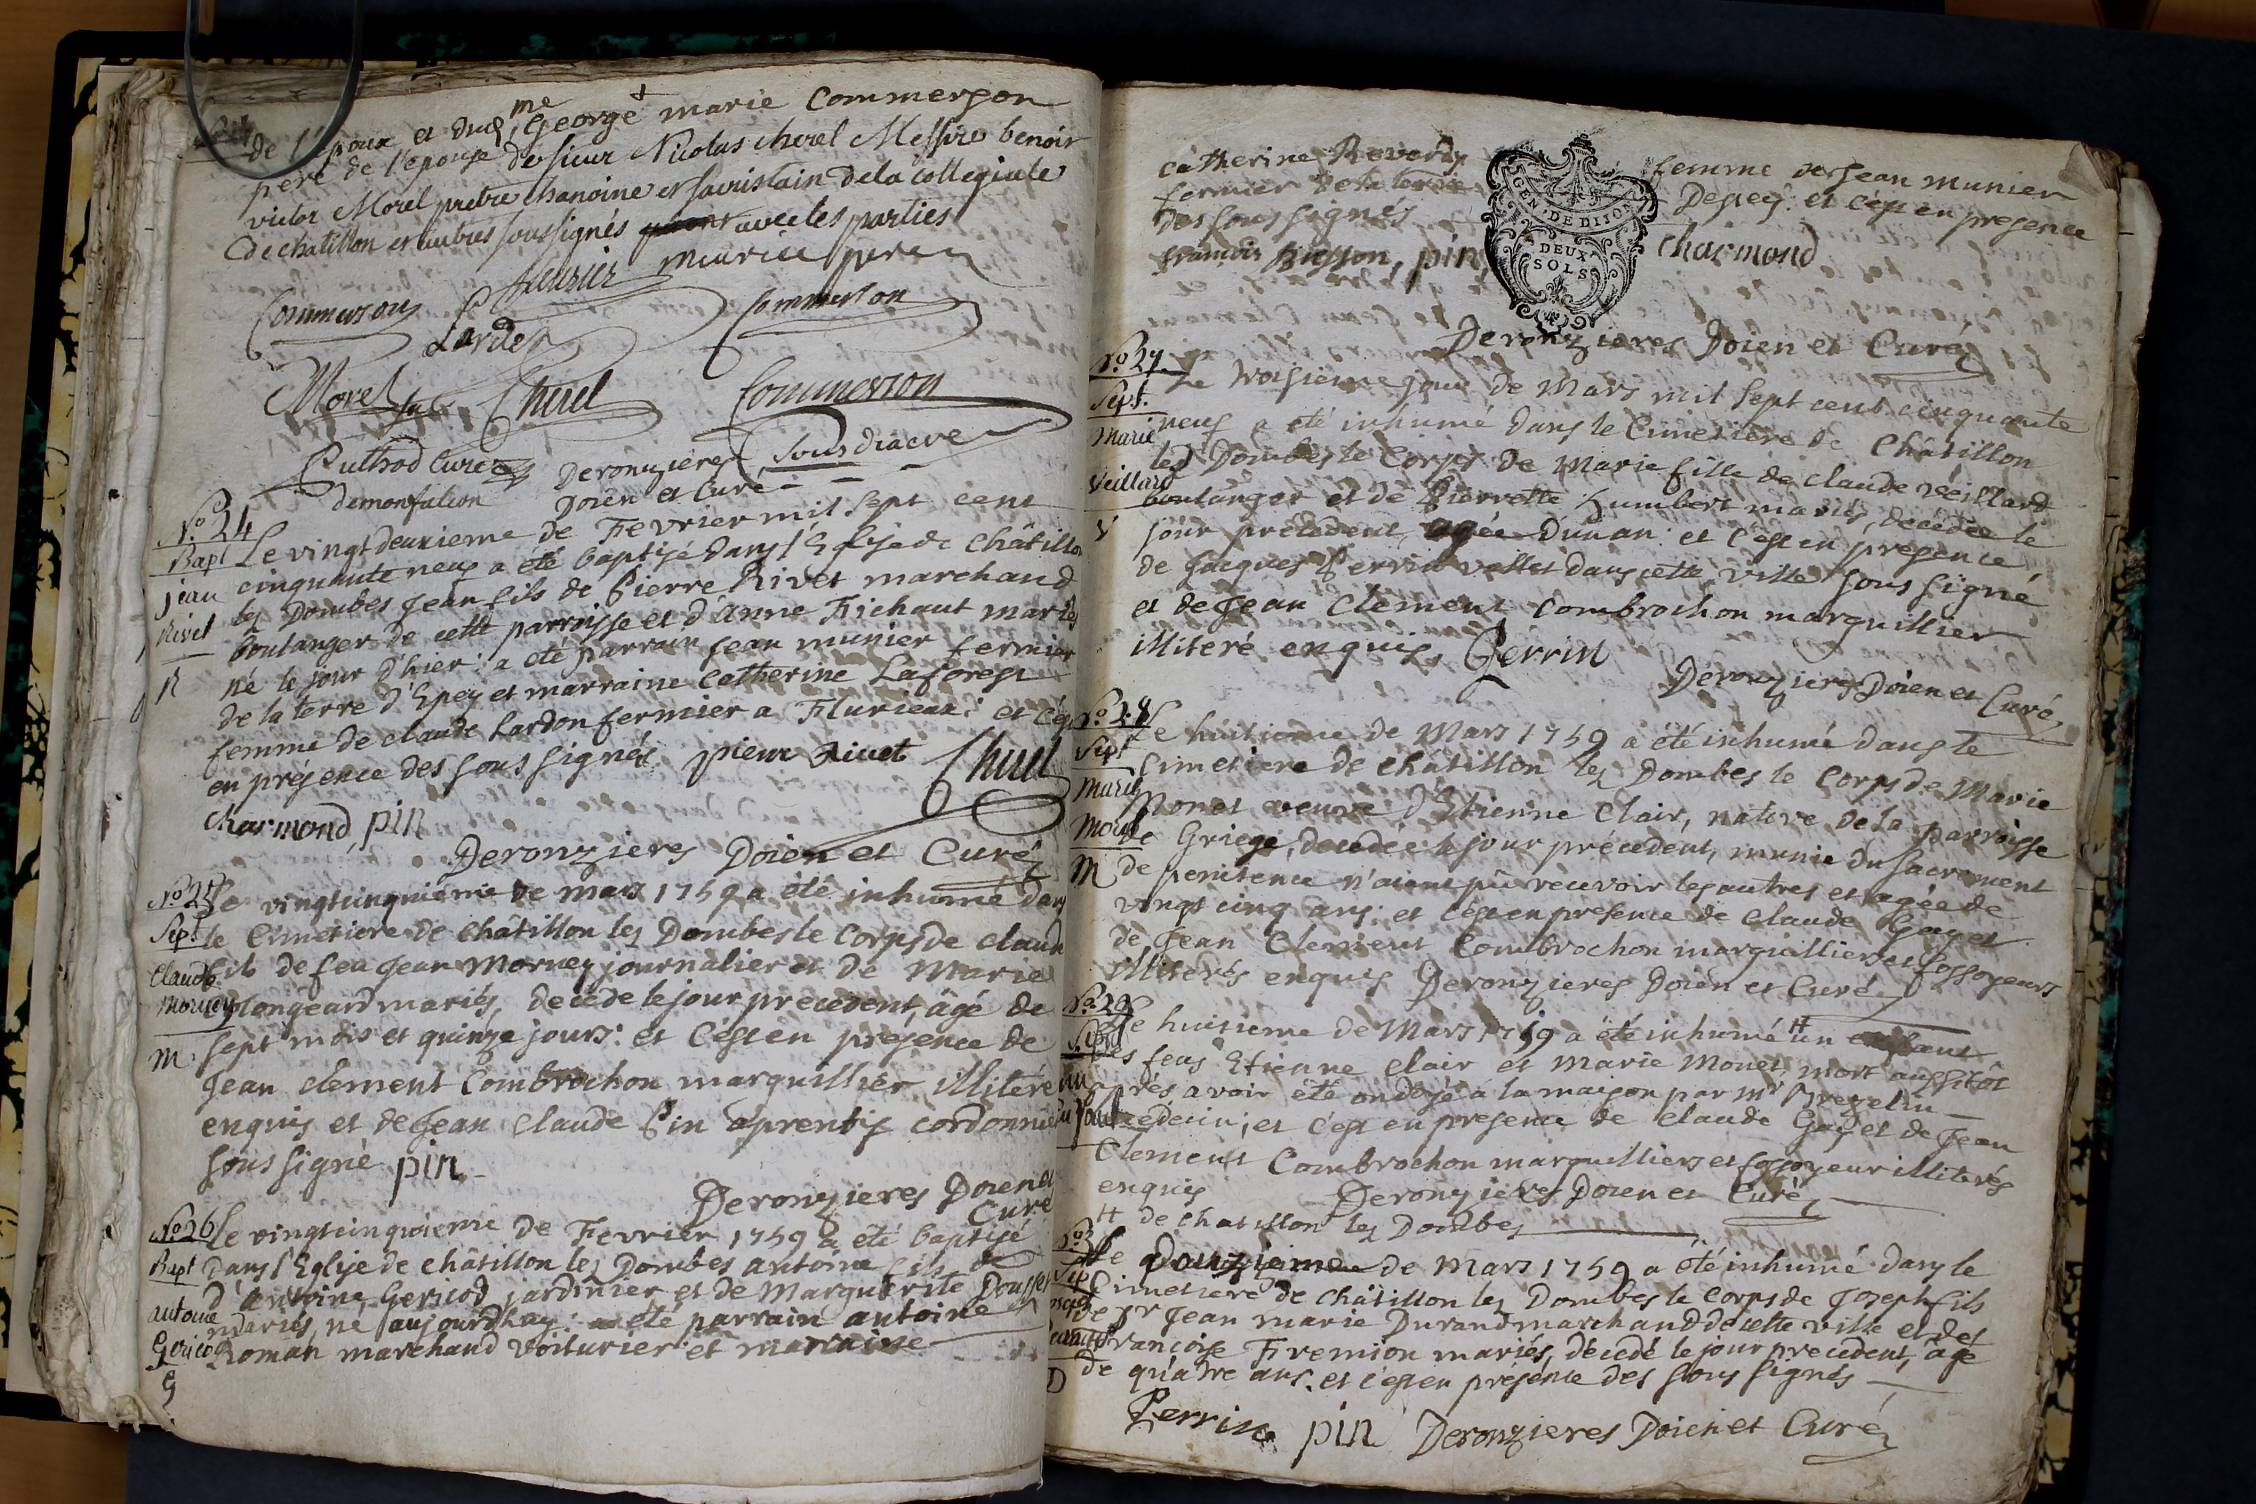 de l'epoux et dud. me George marie Commerson
pere de l'epouse de sieur Nicolas cherel Messire benoit
victor Morel pretre chanoine et sacristain de la collegiale
de chatillon et autres soussignés avec les parties
maurice
Commerson Commerson
Morel Cherel Commerson
Sous diacre
Curé Deronzieres
Doien et Curé
No 24
Bapt
jean
Rivet
R
Le vingtdeuxieme de Fevrier mil sept cent
cinquante neuf a été baptisé dans l'Eglise de Châtillon
les Dombes Jean fils de Pierre Rivet marchand
boulanger de cette parroisse et d'anne Fichaut mariés
né le jour d'hier: a été parrain Jean munier fermier
de la terre d'Epey et marraine Catherine Laforest
femme de claude Lardon fermier a Flurieux: et c'est
en présence des sous signés. pierre Rivet Cherel
charmond, pin
Deronzieres Doien et Curé
No 25
Sept
Claude
Morney
M
Le vingtcinquième de mars 1759 a été inhumé dans
le Cimetiere de châtillon les Dombes le corps de claude
fils de feu Jean Morney journalier et de Marie
longeard mariés, decedé le jour precedent, âgé de
sept mois et quinze jours: et c'est en présence de
Jean clement Combrochon marguillier illiteré
enquis et de Jean Claude Pin aprentif cordonnier
sous signé pin
Deronzieres Doien et
Curé
No 26
Bapt
antoine
Gericod
G
Le vingtcinquieme de Fevrier 1759 a été baptisé
Dans l'Eglise de châtillon les Dombes antoine fils
d'antoine Gericod jardinier et de Marguerite
mariés, né aujourdhuy: a été parrain antoine
Roman marchand voiturier et marraine
catherine Reverdy femme de Jean munier
fermier de la terre Depey: et c'est en presence
des sous signés
françois Bisson, pin charmond
GEN. DE DIJON
DEUX
SOLS
Deronzieres Doien et Curé
No 27
Sept.
Marie
Veillard
V
Le troisieme jour de Mars mil sept cent cinquante
neuf a été inhumé dans le Cimetiere de Châtillon
les Dombes le Corps de Marie fille de claude veillard
boulanger et de Pierrette humbert mariés, decedée le
jour précédent, agée Dun an: et c'est en presence
de Jacques Perrin vallet dans cette ville sous signé
et de Jean Clement Combrochon marguillier
illiteré enquis, Perrin
Deronzieres Doien et Curé
No 28
Sept
Marie
Monet
M
Le huitieme de Mars 1759 a été inhumé dans le
Cimetiere de châtillon les Dombes le Corps de Marie
Monet veuve d'Etienne Clair, native de la parroisse
de Griege, decedée le jour précedent, munie du sacrement
de penitence n'aiant pu recevoir les autres et agée de
vingt cinq ans: et c'est en presence de Claude Gayet
de Jean Clement Combrochon marguilliers et fossoyeurs
illiterés enquis Deronzieres Doien et Curé
No 29
Sept
un
Le huitieme de Mars 1759 a été inhumé # un enfant
des feus Etienne clair et marie Monet, mort aussitôt
aprés avoir été ondoyé à la maison par Mr
médecin; et c'est en presence de claude Gayet de Jean
Clement Combrochon marguilliers et fossoyeur illiterés
enquis Deronzieres Doien et Curé
# de chatillon les Dombes
Joseph
Durand
D
Le Douzieme de Mars 1759 a été inhumé dans le
Cimetiere de châtillon les Dombes le corps de Joseph fils
de Sr Jean marie Durand marchand de cette ville et de
françoise Fremion mariés, décedé le jour precedent, âgé
de quatre ans. et c'est en présence des sous signés
Perrin pin Deronzieres Doien et Curé